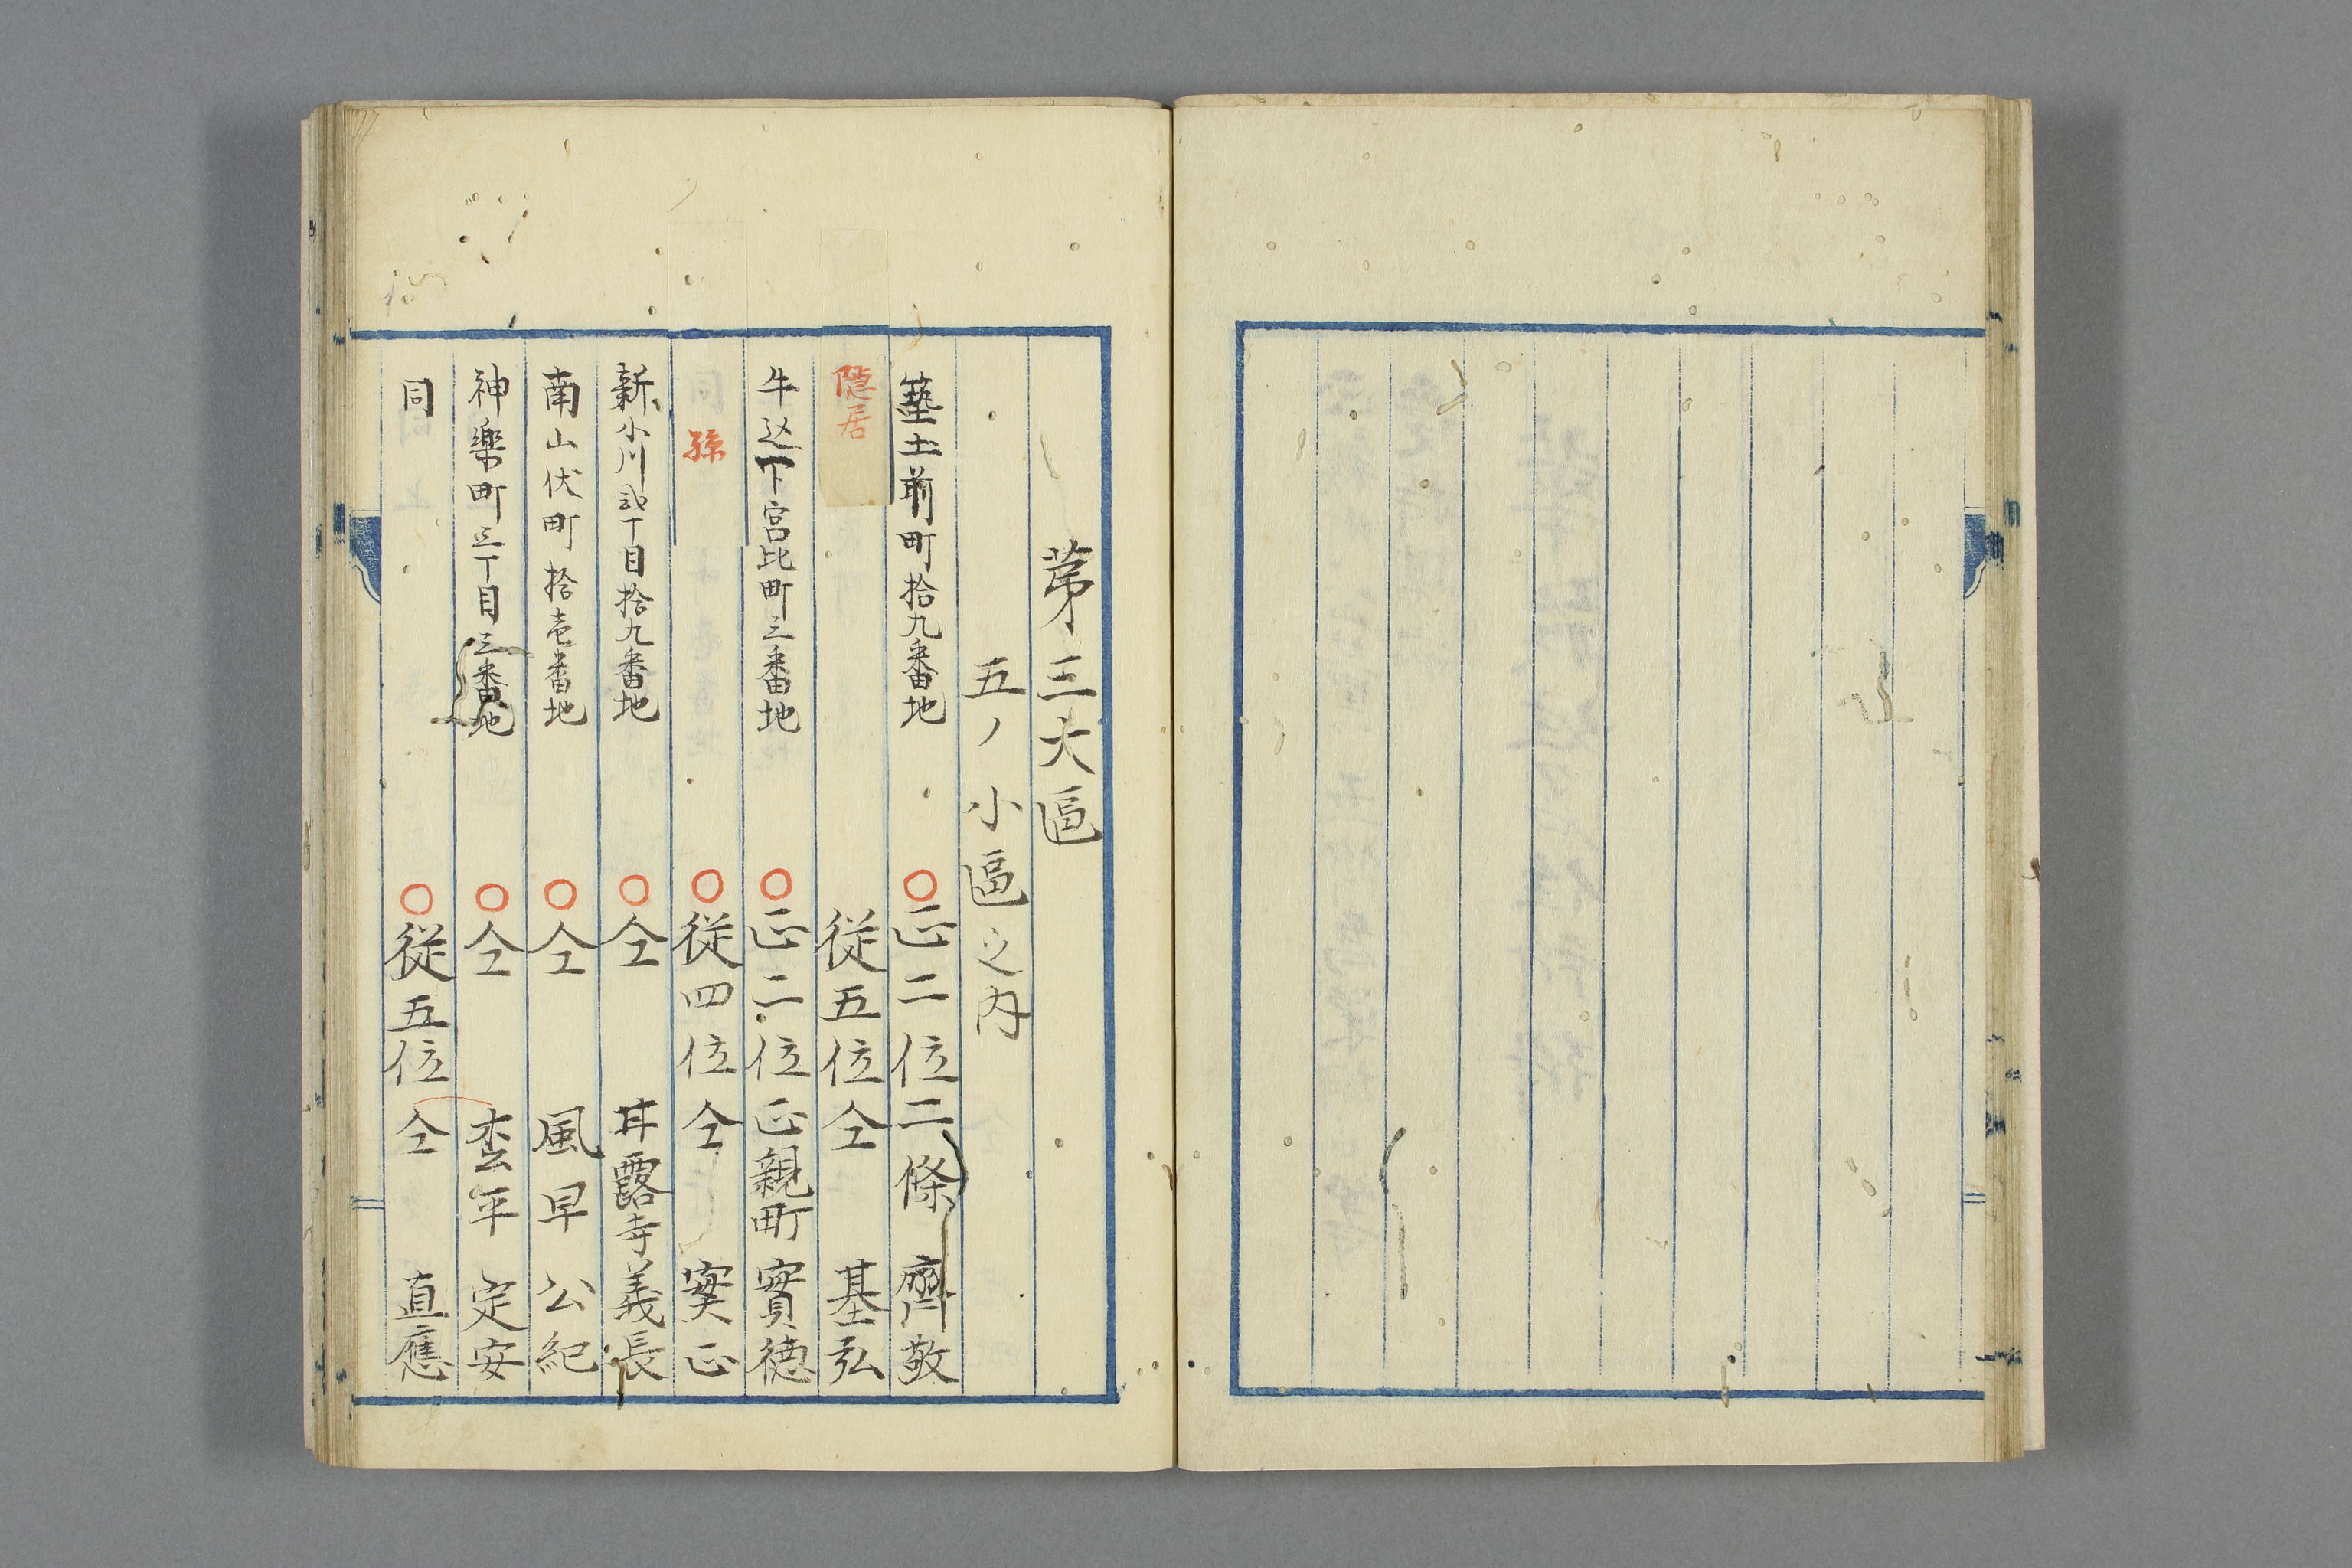 第三大區
五ノ小區之内
築土前町拾九番地 ○正二位二條 齊敬
隠居 従五位仝 基弘
牛込下宮比町三番地 ○正二位正親町實徳
孫 ○従四位仝 實正
新小川弐丁目拾九番地 ○仝 甘露寺義長
南山伏町拾壱番地 ○仝 風早 公紀
神楽町三丁目三番地 ○仝 枩平 定安
同 ○従五位仝 直應